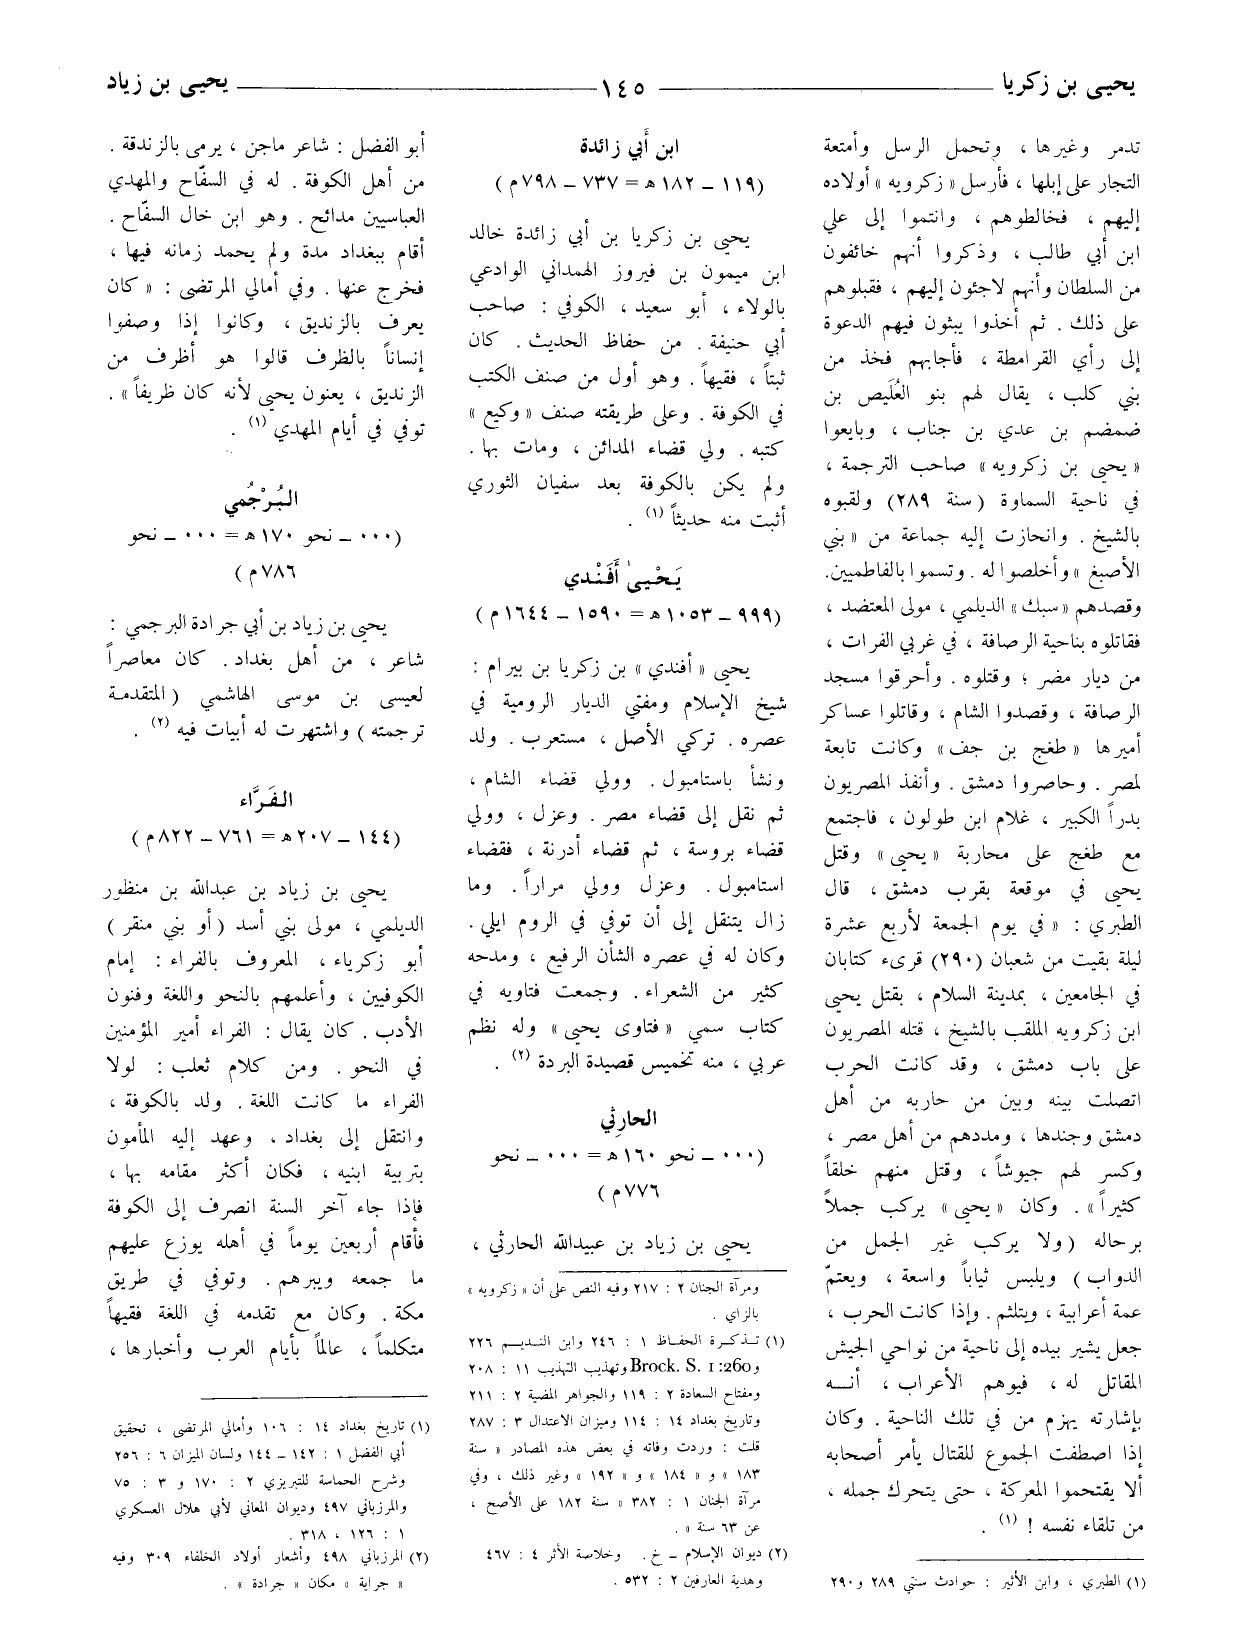 يحيى بن زكريا
١٤٥
يحيى بن زياد
تدمر وغيرها ، وتحمل الرسل وأمتعة
التجار على إبلها ، فأرسل « زكرويه » أولاده
إليهم ، فخالطوهم ، وانتموا إلى علي
ابن أبي طالب ، وذكروا أنهم خائفون
من السلطان وأنهم لاجئون إليهم ، فقبلوهم
على ذلك . ثم أخذوا يبثون فيهم الدعوة
إلى رأي القرامطة ، فأجابهم فخذ من
بني كلب ، يقال لهم بنو العُلَيص بن
ضمضم بن عدي بن جناب ، وبايعوا
« يحيى بن زكرويه » صاحب الترجمة ،
في ناحية السماوة (سنة ٢٨٩) ولقبوه
بالشيخ . وانحازت إليه جماعة من « بني
الأصبغ » وأخلصوا له . وتسموا بالفاطميين.
وقصدهم « سبك » الديلمي ، مولى المعتضد ،
فقاتلوه بناحية الرصافة ، في غربي الفرات ،
من ديار مضر ؛ وقتلوه . وأحرقوا مسجد
الرصافة ، وقصدوا الشام ، وقاتلوا عساكر
أميرها « طغج بن جف » وكانت تابعة
لمصر . وحاصروا دمشق . وأنفذ المصريون
بدراً الكبير ، غلام ابن طولون ، فاجتمع
مع طغج على محاربة « يحيى » وقتل
يحيى في موقعة بقرب دمشق ، قال
الطبري : « في يوم الجمعة لأربع عشرة
ليلة بقيت من شعبان (٢٩٠) قرىء كتابان
في الجامعين ، بمدينة السلام ، بقتل يحيى
ابن زكرويه الملقب بالشيخ ، قتله المصريون
على باب دمشق ، وقد كانت الحرب
اتصلت بينه وبين من حاربه من أهل
دمشق وجندها ، ومددهم من أهل مصر ،
وكسر لهم جيوشاً ، وقتل منهم خلقاً
كثيراً ». وكان « يحيى » يركب جملاً
برحاله (ولا يركب غير الجمل من
الدواب ) ويلبس ثياباً واسعة ، ويعتمّ
عمة أعرابية ، ويتلثم . وإذا كانت الحرب ،
جعل يشير بيده إلى ناحية من نواحي الجيش
المقاتل له ، فيوهم الأعراب ، أنـه
بإشارته يهزم من في تلك الناحية . وكان
إذا اصطفت الجموع للقتال يأمر أصحابه
ألا يقتحموا المعركة ، حتى يتحرك جمله ،
من تلقاء نفسه ! (١) .
(١) الطبري ، وابن الأثير : حوادث سنتي ٢٨٩ و٢٩٠
ابن أَبي زائدة
(١١٩ – ١٨٢ ھ = ٧٣٧ – ٧٩٨ م )
يحيى بن زكريا بن أبي زائدة خالد
ابن ميمون بن فيروز الهمداني الوادعي
بالولاء ، أبو سعيد ، الكوفي : صاحب
أبي حنيفة . من حفاظ الحديث . كان
ثبتاً ، فقيهاً . وهو أول من صنف الكتب
في الكوفة . وعلى طريقته صنف « وكيع »
كتبه . ولي قضاء المدائن ، ومات بها .
ولم يكن بالكوفة بعد سفيان الثوري
أثبت منه حديثاً (١) .
يَحْيىٰ أَفَنْدي
(٩٩٩ – ١٠٥٣ ھ = ١٥٩٠ – ١٦٤٤ م )
يحيى « أفندي » بن زكريا بن بيرام :
شيخ الإسلام ومفتي الديار الرومية في
عصره . تركي الأصل ، مستعرب . ولد
ونشأ باستامبول . وولي قضاء الشام ،
ثم نقل إلى قضاء مصر . وعزل ، وولي
قضاء بروسة ، ثم قضاء أدرنة ، فقضاء
استامبول . وعزل وولي مراراً . وما
زال يتنقل إلى أن توفي في الروم ايلي .
وكان له في عصره الشأن الرفيع ، ومدحه
كثير من الشعراء . وجمعت فتاويه في
كتاب سمي « فتاوى يحيى » وله نظم
عربي ، منه تخميس قصيدة البردة (٢) .
الحارِثي
(٠٠٠ – نحو ١٦٠ ھ = ٠٠٠ – نحو
٧٧٦ م )
يحيى بن زياد بن عبيدالله الحارثي ،
ومرآة الجنان ٢ : ٢١٧ وفيه النص على أن « زكرويه »
بالزاي .
(١) تـذكـرة الحفـاظ ١ : ٢٤٦ وابن النـديـم ٢٢٦
وBrock. S. 1:260 وتهذيب التهذيب ١١ : ٢٠٨
ومفتاح السعادة ٢ : ١١٩ والجواهر المضية ٢ : ٢١١
وتاريخ بغداد ١٤ : ١١٤ وميزان الاعتدال ٣ : ٢٨٧
قلت : وردت وفاته في بعض هذه المصادر « سنة
١٨٣ » و « ١٨٤ » و « ١٩٢ » وغير ذلك ، وفي
مرآة الجنان ١ : ٣٨٢ « سنة ١٨٢ على الأصح ،
عن ٦٣ سنة » .
(٢) ديوان الإسلام – خ . وخلاصة الأثر ٤ : ٤٦٧
وهدية العارفين ٢ : ٥٣٢ .
أبو الفضل : شاعر ماجن ، يرمى بالزندقة .
من أهل الكوفة . له في السفّاح والمهدي
العباسيين مدائح . وهو ابن خال السفّاح .
أقام ببغداد مدة ولم يحمد زمانه فيها ،
فخرج عنها . وفي أمالي المرتضى : « كان
يعرف بالزنديق ، وكانوا إذا وصفوا
إنساناً بالظرف قالوا هو أظرف من
الزنديق ، يعنون يحيى لأنه كان ظريفاً » .
توفي في أيام المهدي (١) .
البُرْجُمي
(٠٠٠ – نحو ١٧٠ ھ = ٠٠٠ – نحو
٧٨٦ م )
يحيى بن زياد بن أبي جرادة البرجمي :
شاعر ، من أهل بغداد . كان معاصراً
لعيسى بن موسى الهاشمي ( المتقدمـة
ترجمته ) واشتهرت له أبيات فيه (٢) .
الفَرَّاء
(١٤٤ – ٢٠٧ ھ = ٧٦١ – ٨٢٢ م )
يحيى بن زياد بن عبدالله بن منظور
الديلمي ، مولى بني أسد ( أو بني منقر )
أبو زكرياء ، المعروف بالفراء : إمام
الكوفيين ، وأعلمهم بالنحو واللغة وفنون
الأدب . كان يقال : الفراء أمير المؤمنين
في النحو . ومن كلام ثعلب : لولا
الفراء ما كانت اللغة . ولد بالكوفة ،
وانتقل إلى بغداد ، وعهد إليه المأمون
بتربية ابنيه ، فكان أكثر مقامه بها ،
فإذا جاء آخر السنة انصرف إلى الكوفة
فأقام أربعين يوماً في أهله يوزع عليهم
ما جمعه ويبرهم . وتوفي في طريق
مكة . وكان مع تقدمه في اللغة فقيهاً
متكلماً ، عالماً بأيام العرب وأخبارها ،
(١) تاريخ بغداد ١٤ : ١٠٦ وأمالي المرتضى ، تحقيق
أبي الفضل ١ : ١٤٢ – ١٤٤ ولسان الميزان ٦ : ٢٥٦
وشرح الحماسة للتبريزي ٢ : ١٧٠ و ٣ : ٧٥
والمرزباني ٤٩٧ وديوان المعاني لأبي هلال العسكري
١ : ١٢٦ ، ٣١٨ .
(٢) المرزباني ٤٩٨ وأشعار أولاد الخلفاء ٣٠٩ وفيه
« جراية » مكان « جرادة » .